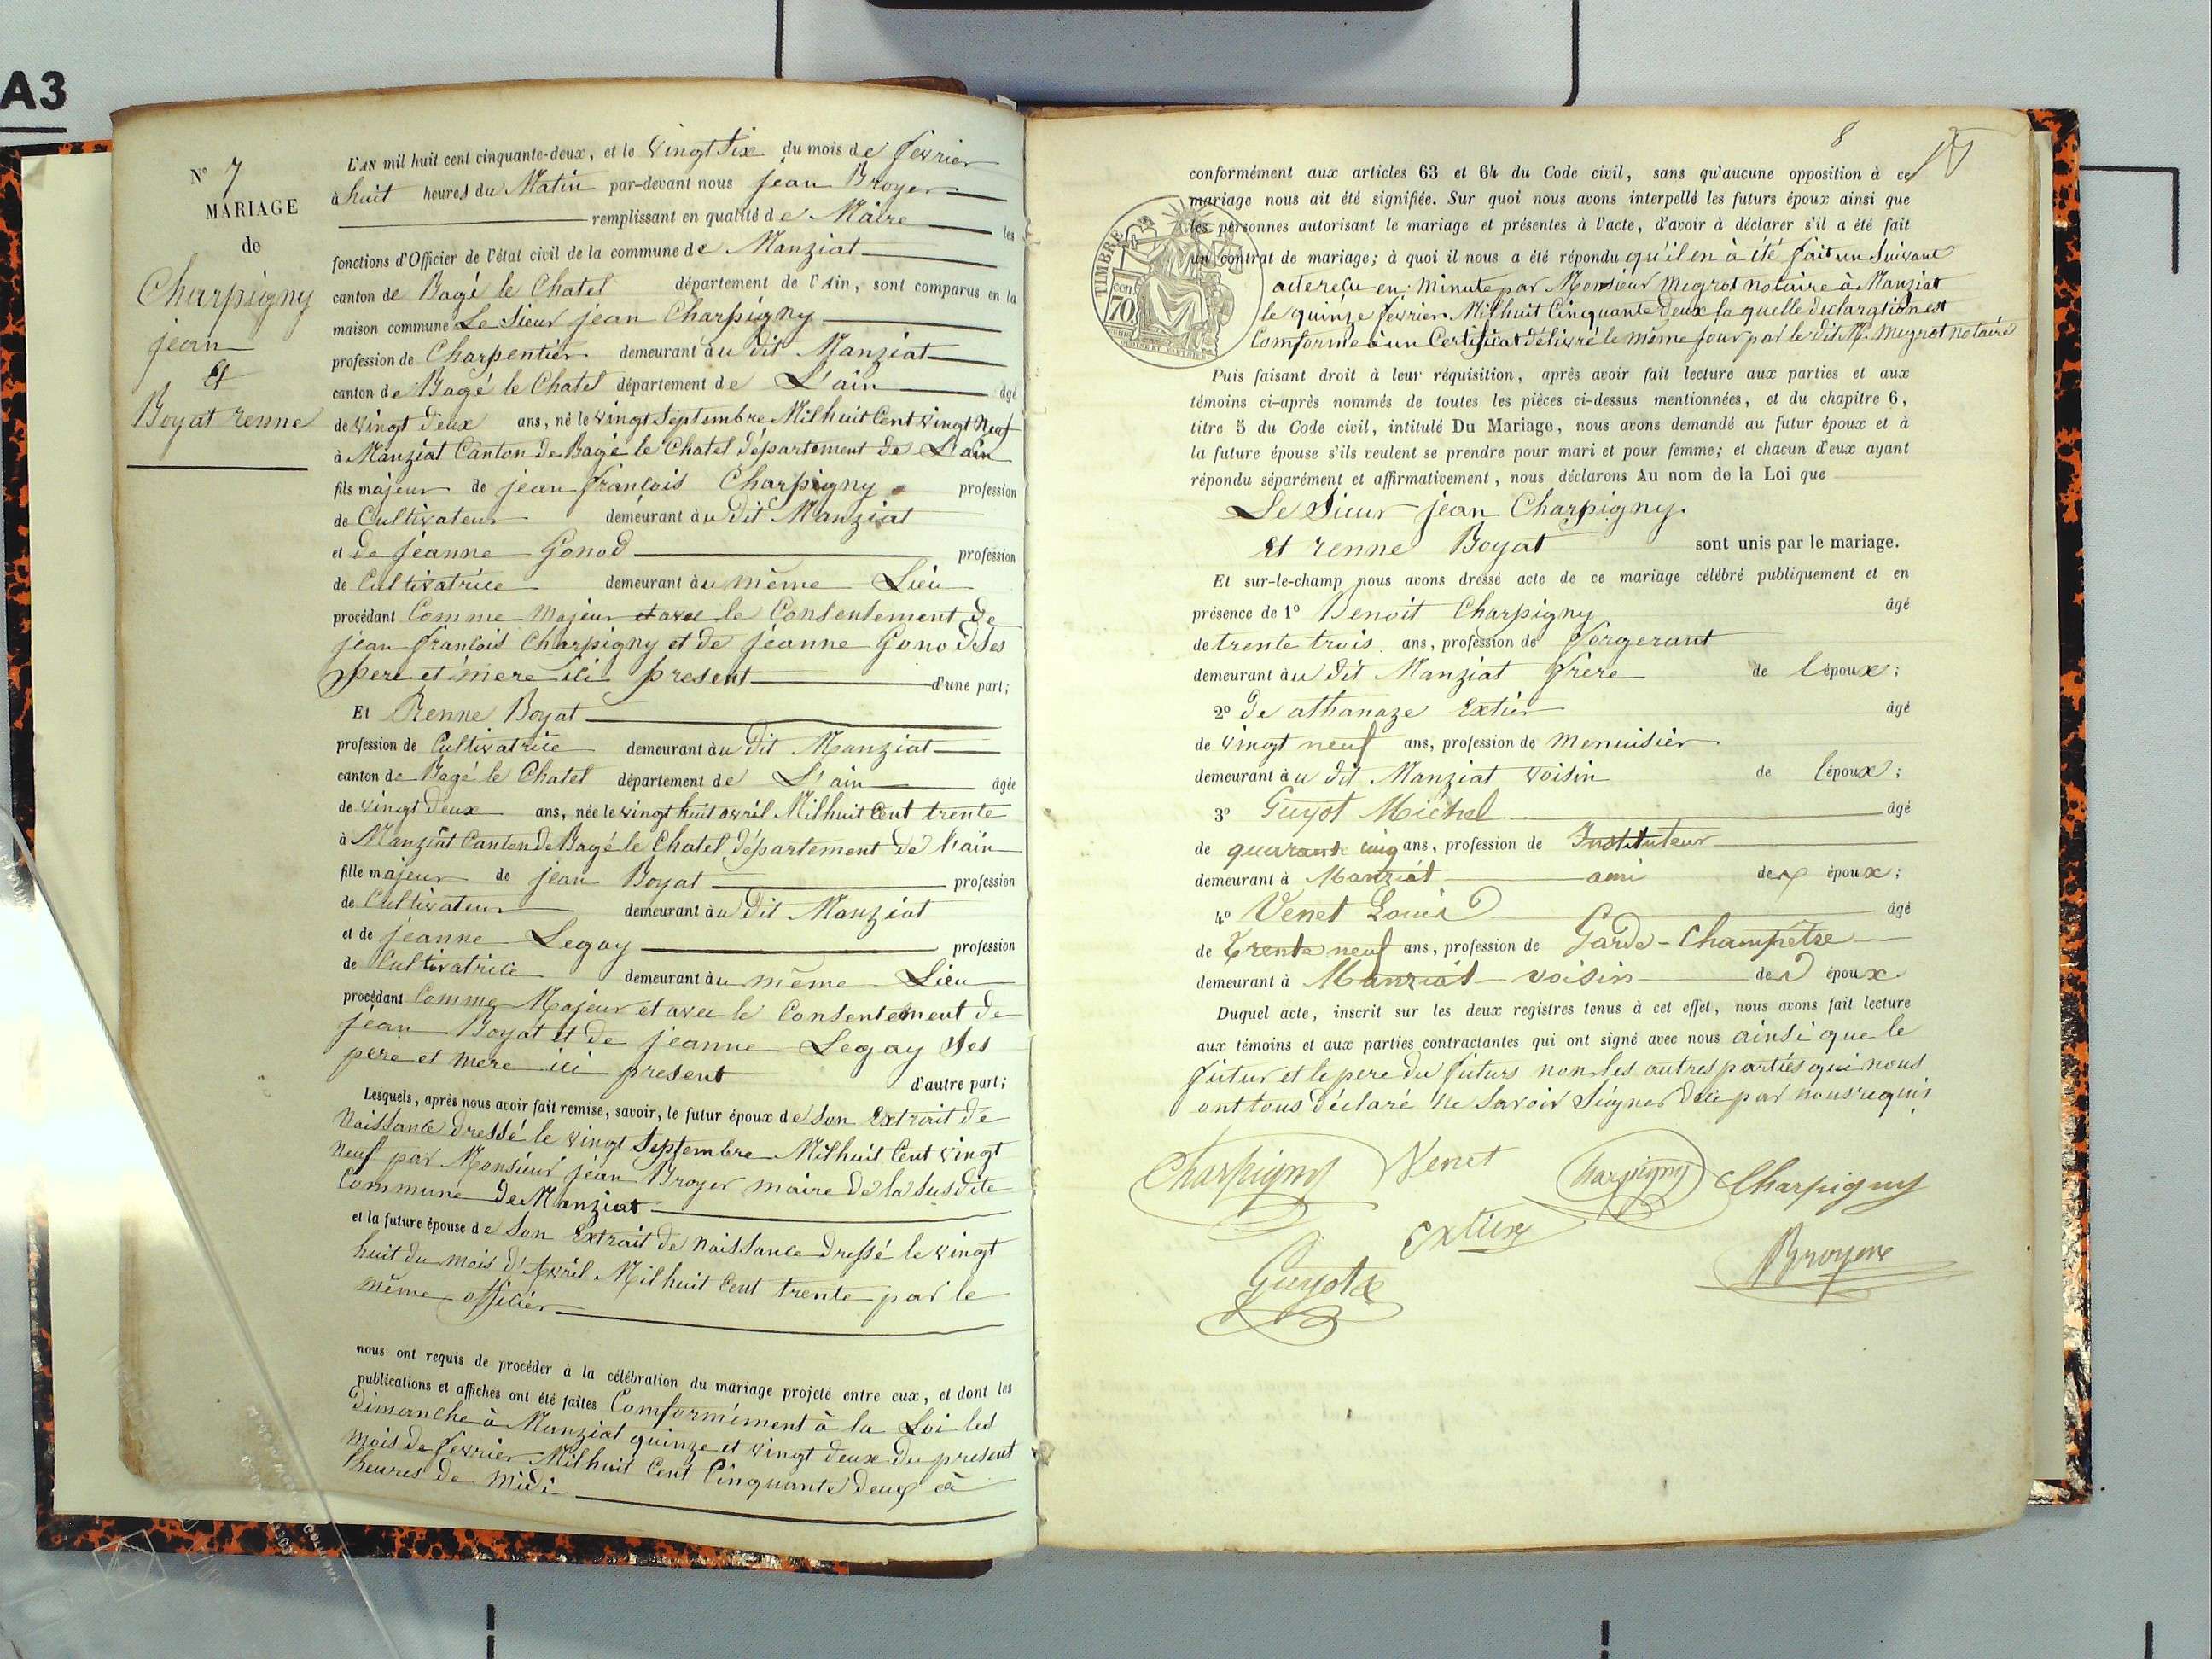 A3
N° 7
MARIAGE
de
Charpigny
jean
Et
Boyat renne
L'AN mil huit cent cinquante-deux, et le vingt Six du mois de fevrier
à huit heures du Matin par-devant nous jean Broyer
remplissant en qualité de Maire les
fonctions d'Officier de l'état civil de la commune de Manziat
canton de Bagé le Chatel département de l'Ain, sont comparus en la
maison commune Le Sieur jean Charpigny
profession de Charpentier demeurant au dit Manziat
canton de Bagé le Chatel département de L'ain âgé
de vingt deux ans, né le vingt Septembre Mil huit Cent vingt Neuf
à Manziat Canton de Bagé le Chatel département de L'ain
fils majeur de jean françois Charpigny profession
de Cultivateur demeurant au dit Manziat
et de jeanne Gonod profession
de Cultivatrice demeurant au même Lieu
procédant Comme Majeur et avec le Consentement de
jean françois Charpigny et de jeanne Gonod Ses
pere et mere ici present d'une part;
Et Renne Boyat
profession de Cultivatrice demeurant au dit Manziat
canton de Bagé le Chatel département de L'ain âgée
de vingt deux ans, née le vingt huit avril Mil huit Cent trente
à Manziat Canton de Bagé le Chatel département de l'ain
fille majeur de jean Boyat profession
de Cultivateur demeurant au dit Manziat
et de jeanne Legay profession
de Cultivatrice demeurant au même Lieu
procédant Comme Majeur et avec le Consentement de
jean Boyat et de jeanne Legay Ses
pere et mere ici present d'autre part;
Lesquels, après nous avoir fait remise, savoir, le futur époux de Son Extrait de
Naissance dressé le vingt Septembre Mil huit Cent vingt
Neuf par Monsieur jean Broyer maire de la susdite
Commune de Manziat
et la future épouse de Son Extrait de Naissance dressé le vingt
huit du mois d'Avril Mil huit Cent trente par le
même officier
nous ont requis de procéder à la célébration du mariage projeté entre eux, et dont les
publications et affiches ont été faites Comformément à la Loi les
dimanche à Manziat quinze et vingt deux du present
mois de fevrier Mil huit Cent Cinquante deux à
heures de midi
8
conformément aux articles 63 et 64 du Code civil, sans qu'aucune opposition à ce
mariage nous ait été signifiée. Sur quoi nous avons interpellé les futurs époux ainsi que
les personnes autorisant le mariage et présentes à l'acte, d'avoir à déclarer s'il a été fait
un contrat de mariage; à quoi il nous a été répondu qu'il en à été fait un Suivant
acte reçu en Minute par Monsieur Megrot notaire à Manziat
le quinze fevrier Mil huit Cinquante deux la quelle declaration est
Comforme à un Certificat délivré le même jour par le dit M. Megrot notaire
TIMBRE
70 cen
Puis faisant droit à leur réquisition, après avoir fait lecture aux parties et aux
témoins ci-après nommés de toutes les pièces ci-dessus mentionnées, et du chapitre 6,
titre 5 du Code civil, intitulé Du Mariage, nous avons demandé au futur époux et à
la future épouse s'ils veulent se prendre pour mari et pour femme; et chacun d'eux ayant
répondu séparément et affirmativement, nous déclarons Au nom de la Loi que
Le Sieur jean Charpigny
et renne Boyat sont unis par le mariage.
Et sur-le-champ nous avons dressé acte de ce mariage célébré publiquement et en
présence de 1° Benoit Charpigny âgé
de trente trois ans, profession de forgerant
demeurant au dit Manziat frère de l'époux;
2° de athanaze Extier âgé
de vingt neuf ans, profession de menuisier
demeurant au dit Manziat voisin de l'époux;
3° Guyot Michel âgé
de quarante cinq ans, profession de Instituteur
demeurant à Manziat ami des époux;
4° Venet Louis âgé
de Trente neuf ans, profession de Garde-Champêtre
demeurant à Manziat voisin des époux
Duquel acte, inscrit sur les deux registres tenus à cet effet, nous avons fait lecture
aux témoins et aux parties contractantes qui ont signé avec nous ainsi que le
futur et le pere du futurs non les autres parties qui nous
ont tous déclaré Ne Savoir Signer de ce par nous requis
Charpigny Venet Charpigny Charpigny
Extier
Guyot
Broyer